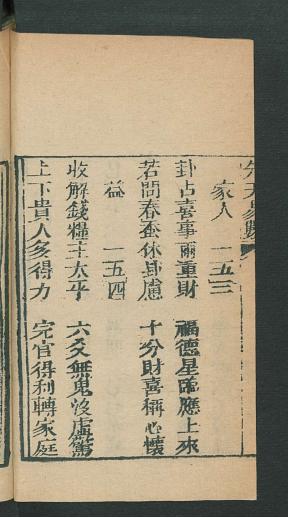 先天易數
家人　一五三
卦占喜事兩重財　福德星臨應上來
若問春蚕休卦慮　十分財喜稱心懷
益　一五四
收解錢糧主太乎　六爻無鬼沒虛驚
上下貴人多得力　完官得利轉家庭